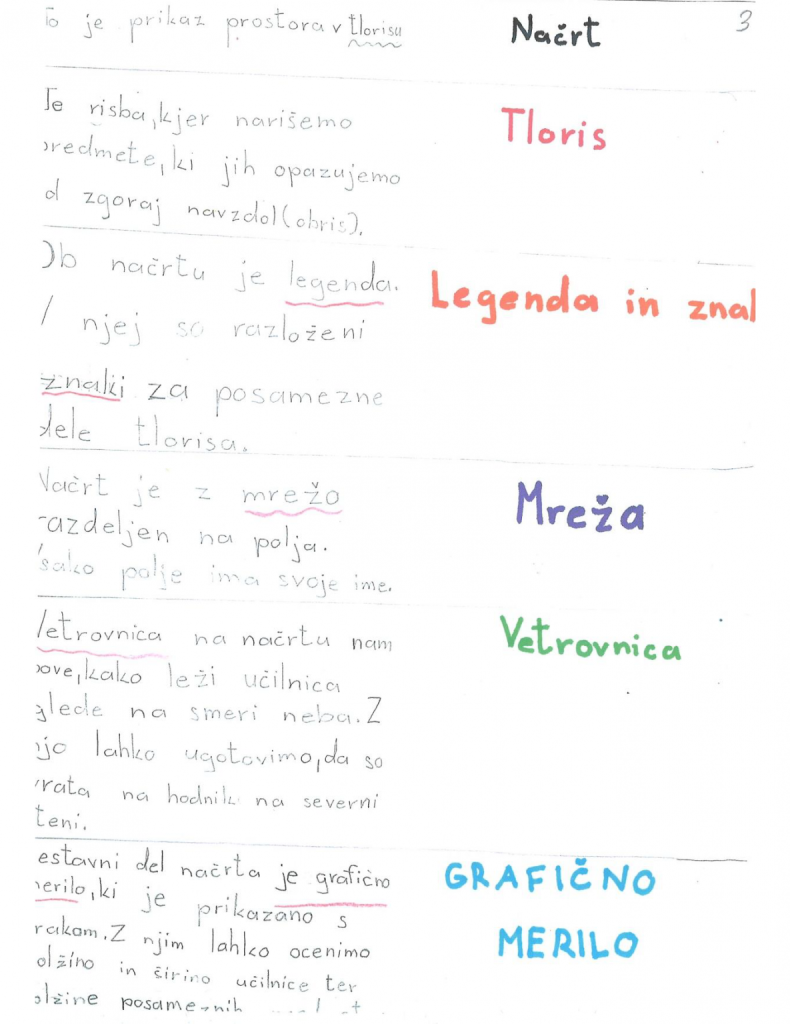 To je prikaz prostora v tlorisu
Načrt
3
Je risba, kjer narišemo
predmete, ki jih opazujemo
d zgoraj navzdol (obris).
Tloris
Ob načrtu je legenda.
V njej so razloženi
znaki za posamezne
dele tlorisa.
Legenda in znal
Načrt je z mrežo
razdeljen na polja.
Vsako polje ima svoje ime.
Mreža
Vetrovnica na načrtu nam
pove, kako leži učilnica
glede na smeri neba. Z
njo lahko ugotovimo, da so
vrata na hodnik na severni
steni.
Vetrovnica
estavni del načrta je grafično
merilo, ki je prikazano s
rakom. Z njim lahko ocenimo
olžino in širino učilnice ter
olžine posameznih
GRAFIČNO
MERILO